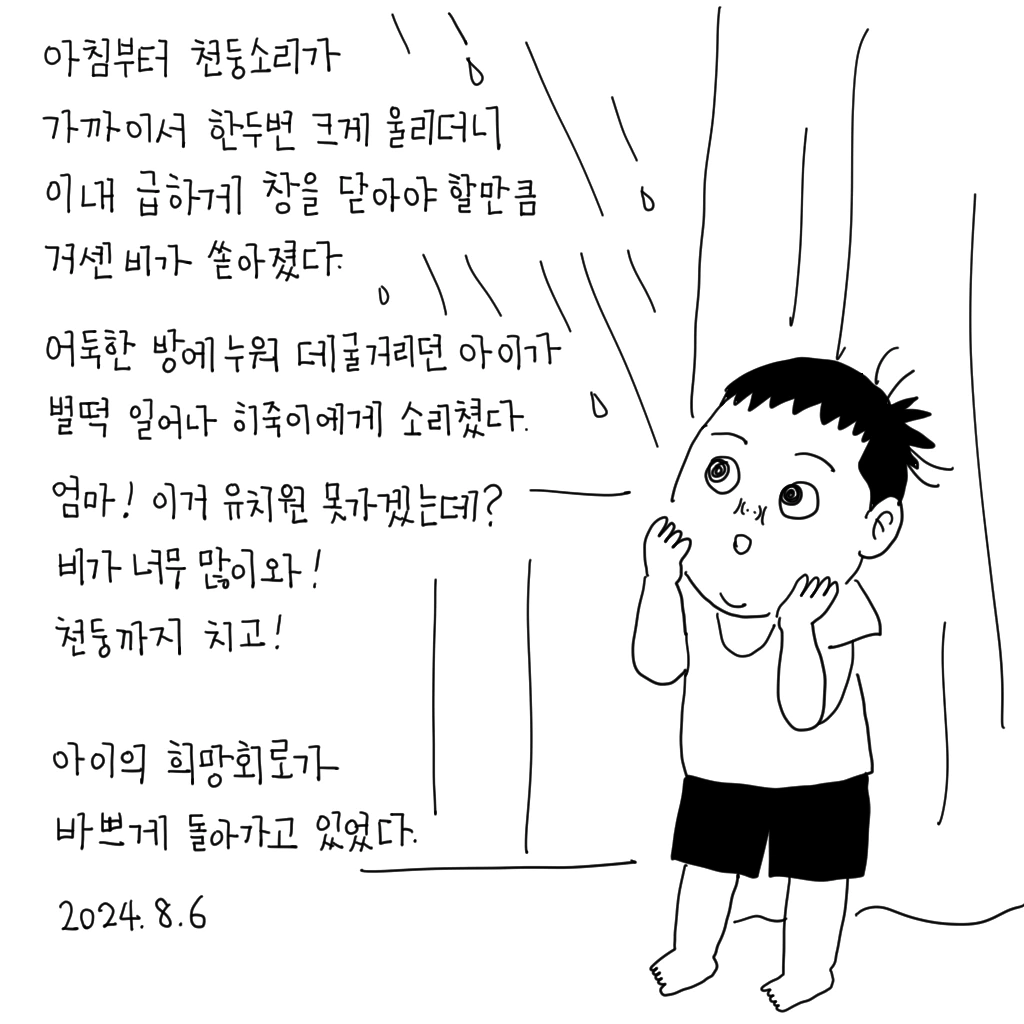 아침부터 천둥소리가
가까이서 한두번 크게 울리더니
이내 급하게 창을 닫아야 할만큼
거센 비가 쏟아졌다.
어둑한 방에 누워 데굴거리던 아이가
벌떡 일어나 히죽이에게 소리쳤다.
엄마! 이거 유치원 못가겠는데?
비가 너무 많이 와!
천둥까지 치고!
아이의 희망회로가
바쁘게 돌아가고 있었다.
2024.8.6